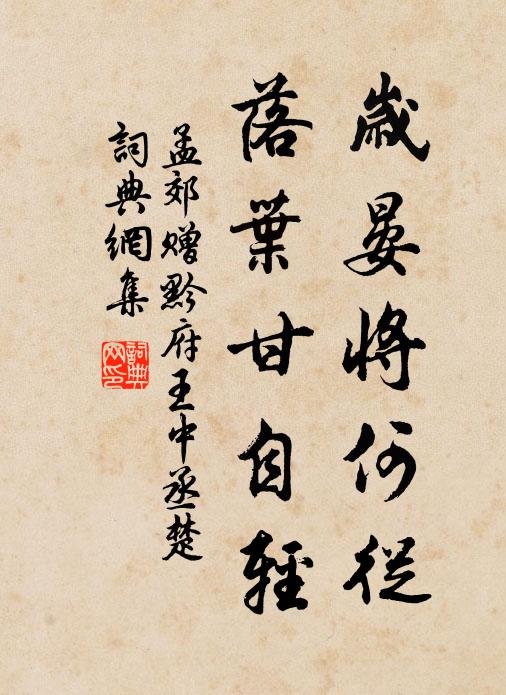 歲晏將何從
落葉甘自輕
孟郊贈黔府王中丞楚
詞典網集
詞典網印